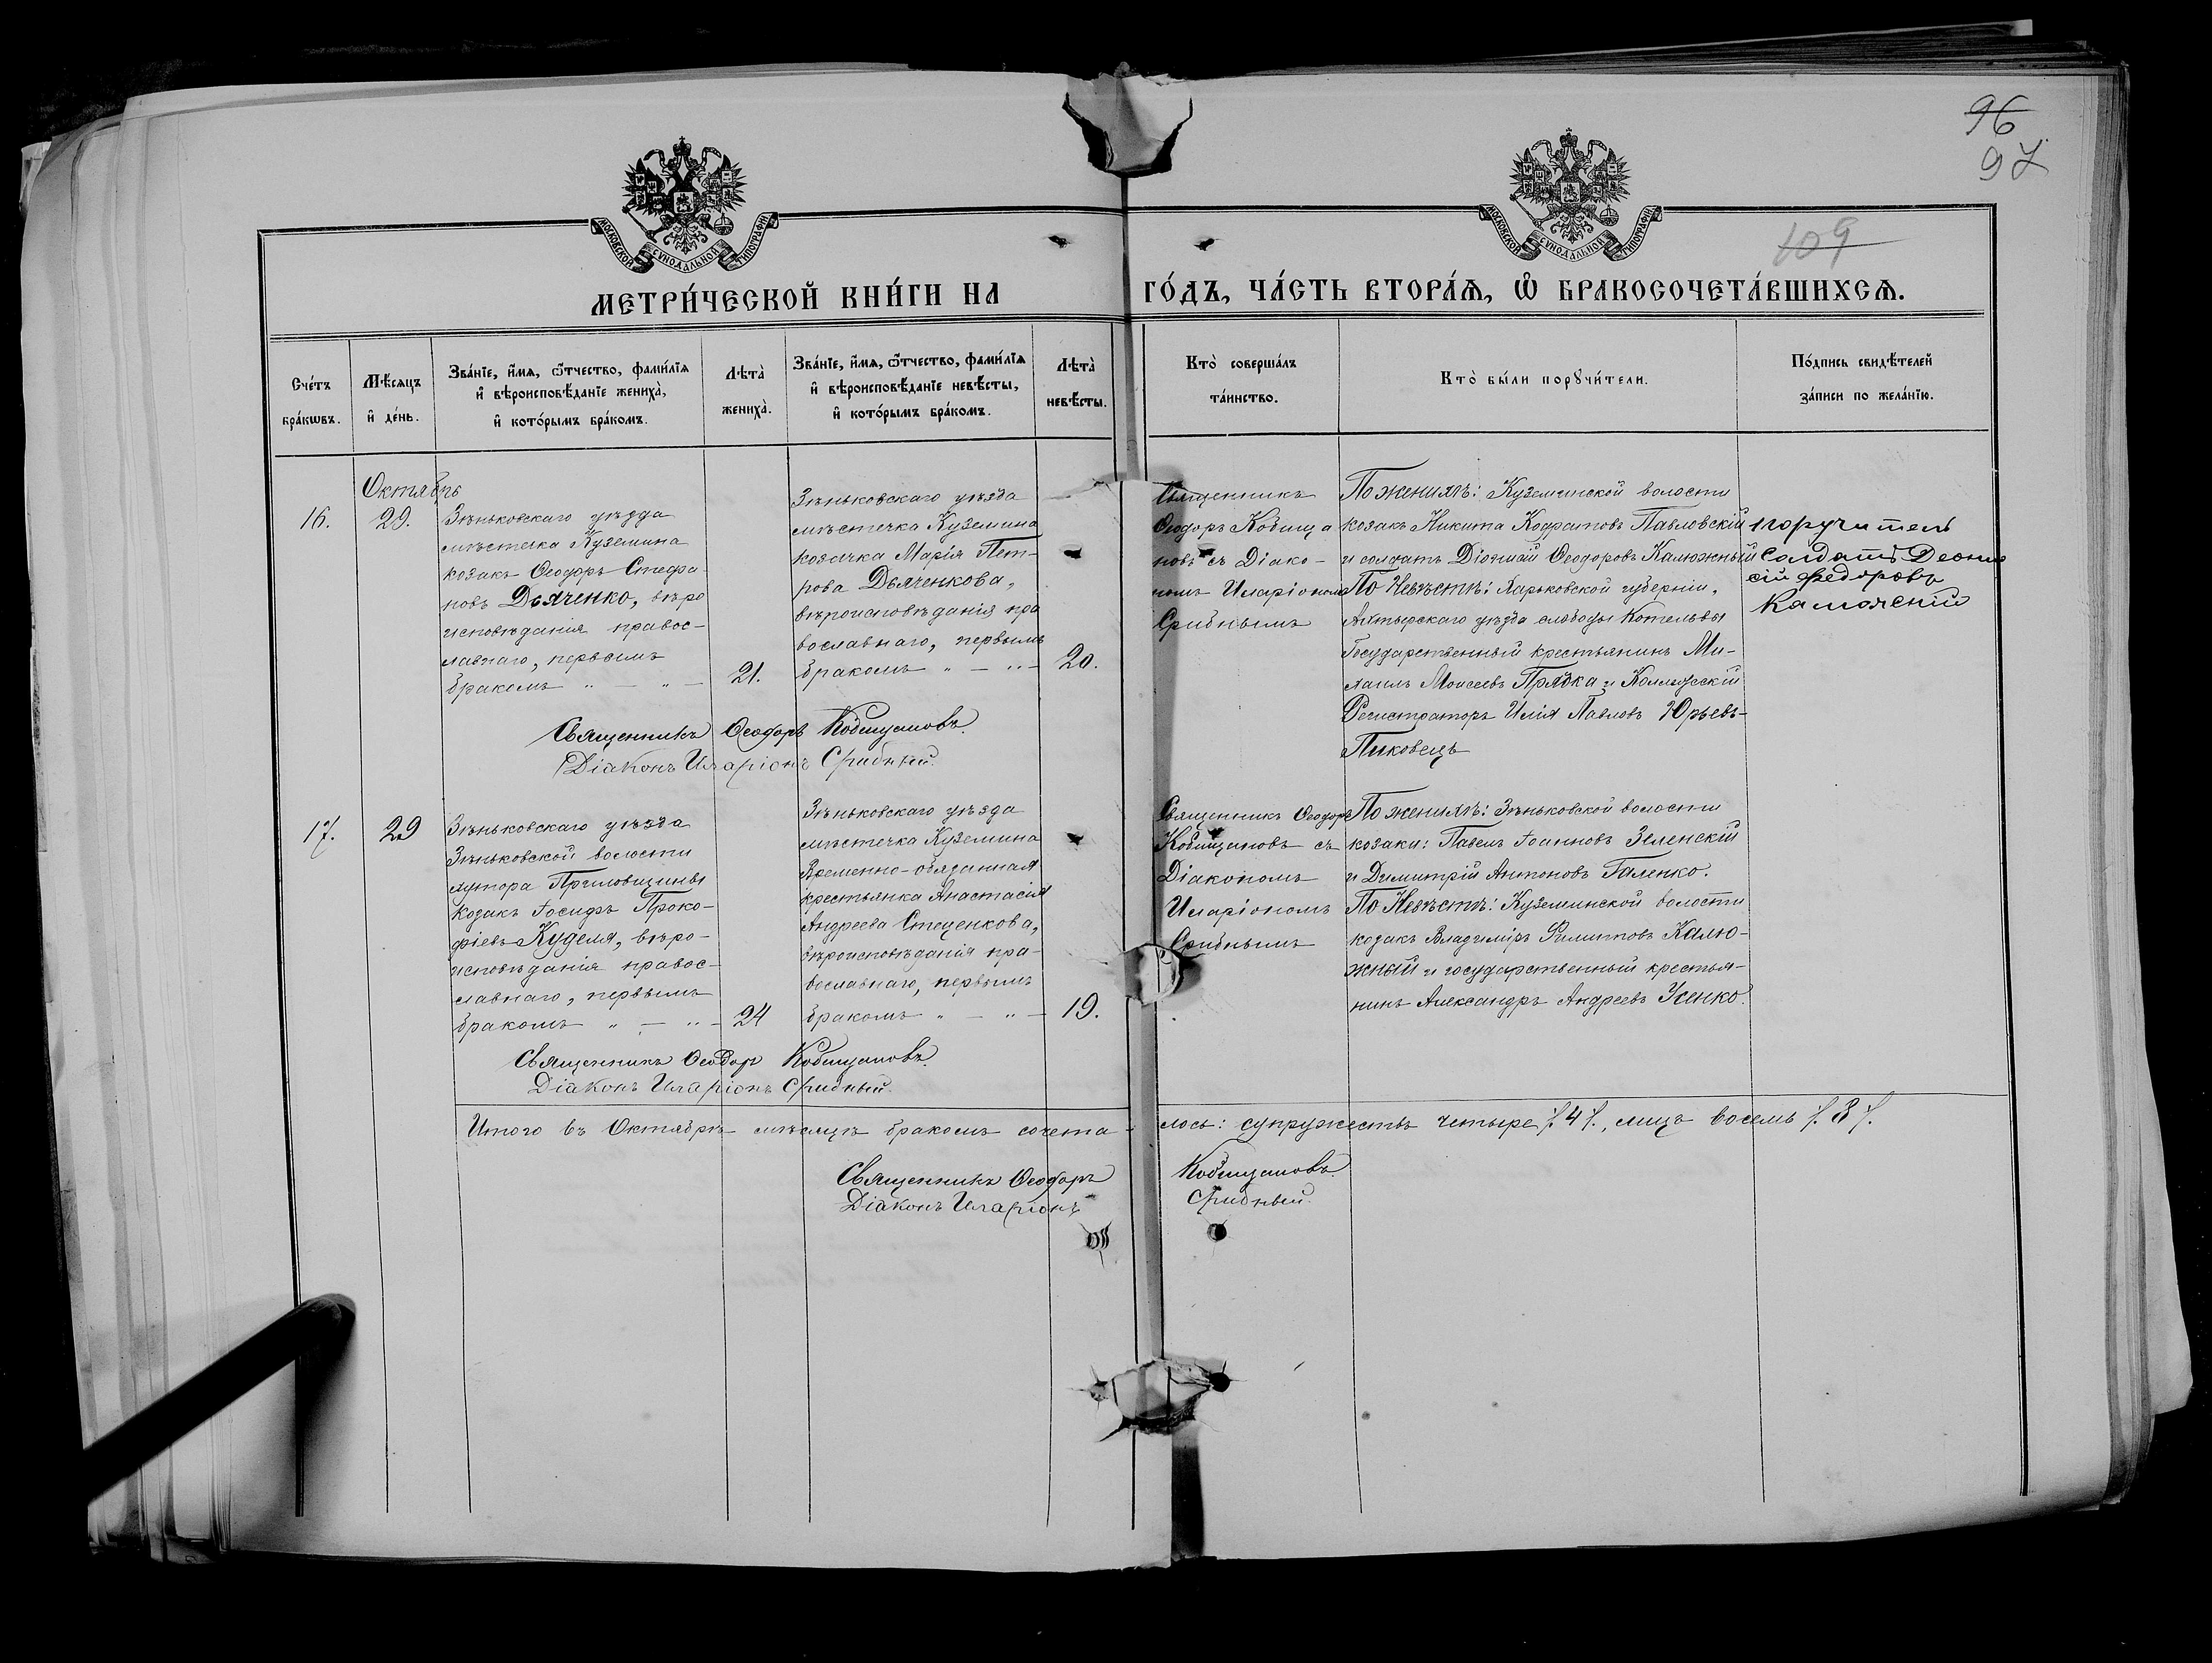 96
97
109
МОСКОВСКОЙ СѴНОДАЛЬНОЙ ТИПОГРАФІИ
МОСКОВСКОЙ СѴНОДАЛЬНОЙ ТИПОГРАФІИ
МЕТРИ́ЧЕСКОЙ КНИ́ГИ НА
ГО́ДЪ, ЧА́СТЬ ВТОРА́Ѧ, Ѽ БРАКОСОЧЕТА́ВШИХСѦ.
Сче́тъ
бра́кѡвъ.
Мѣ́сяцъ
и҆ де́нь.
Зва́нїе, и҆́мѧ, ѻ҆́тчество, фами́лїѧ
и҆ вѣроисповѣ́данїе жениха̀,
и҆ кото́рымъ бра́комъ.
Лѣта̀
жениха̀.
Зва́нїе, и҆́мѧ, ѻ҆́тчество, фами́лїѧ
и҆ вѣроисповѣ́данїе невѣ́сты,
и҆ кото́рымъ бра́комъ.
Лѣта̀
невѣ́сты.
Кто̀ соверша́лъ
та́инство.
Кто̀ бы́ли порꙋчи́тели.
По́дпись свидѣ́телей
за́писи по жела́нїю.
Октябрь
16.
29.
Зѣньковскаго уѣзда
мѣстечка Куземина
козакъ Ѳеодоръ Стефа-
новъ Дьяченко, вѣро
исповѣданія правос-
лавнаго, первымъ
бракомъ " — " —
21.
Зѣньковскаго уѣзда
мѣстечка Куземина
козачка Марія Пет-
рова Дьяченкова,
вѣроисповѣданія пра
вославнаго, первымъ
бракомъ " — " —
20.
Священникъ
Ѳеодоръ Кобища
новъ съ Діако-
номъ Иларіономъ
Срибнымъ
По женихѣ: Куземинской волости
козакъ Никита Кодратовъ Павловскій
и солдатъ Діонисій Ѳеодоровъ Калюжный
По Невѣстѣ: Харьковской губерніи,
Ахтырскаго уѣзда слободы Котельвы
Государственный крестьянинъ Ми-
хаилъ Моисеевъ Прядка и Коллежскій
Регистраторъ Илія Павловъ Юрьевъ-
Пиковецъ
поручитель
Солдатъ Деони
сій Федоровъ
Священникъ Ѳеодоръ Кобищановъ.
Діаконъ Иларіонъ Срибный.
17.
29
Зѣньковскаго уѣзда
Зѣньковской волости
хутора
козакъ Іосифъ Проко-
фіевъ Куделя, вѣро-
исповѣданія правос-
лавнаго, первымъ
бракомъ " — " —
24
Зѣньковскаго уѣзда
мѣстечка Куземина
Временно-обязанная
крестьянка Анастасія
Андреева Стеценкова,
вѣроисповѣданія пра-
вославнаго, первымъ
бракомъ " — " —
19.
Священникъ Ѳеодоръ
Кобищановъ съ
Діакономъ
Иларіономъ
Срибнымъ
По женихѣ: Зѣньковской волости
козаки: Павелъ Іоанновъ Зеленскій
и Димитрій Антоновъ Галенко.
По Невѣстѣ: Куземинской волости
козакъ Владиміръ Филиповъ Калю-
жный и государственный крестья-
нинъ Александръ Андреевъ Усенко.
Священникъ Ѳеодор Кобищановъ.
Діаконъ Иларіонъ Срибный.
Итого въ Октябрѣ мѣсяцѣ бракомъ сочета-
лось: супружествъ четыре /.4/., лицъ восемь /.8/.
Священникъ Ѳеодоръ Кобищановъ.
Діаконъ Иларіонъ Срибный.